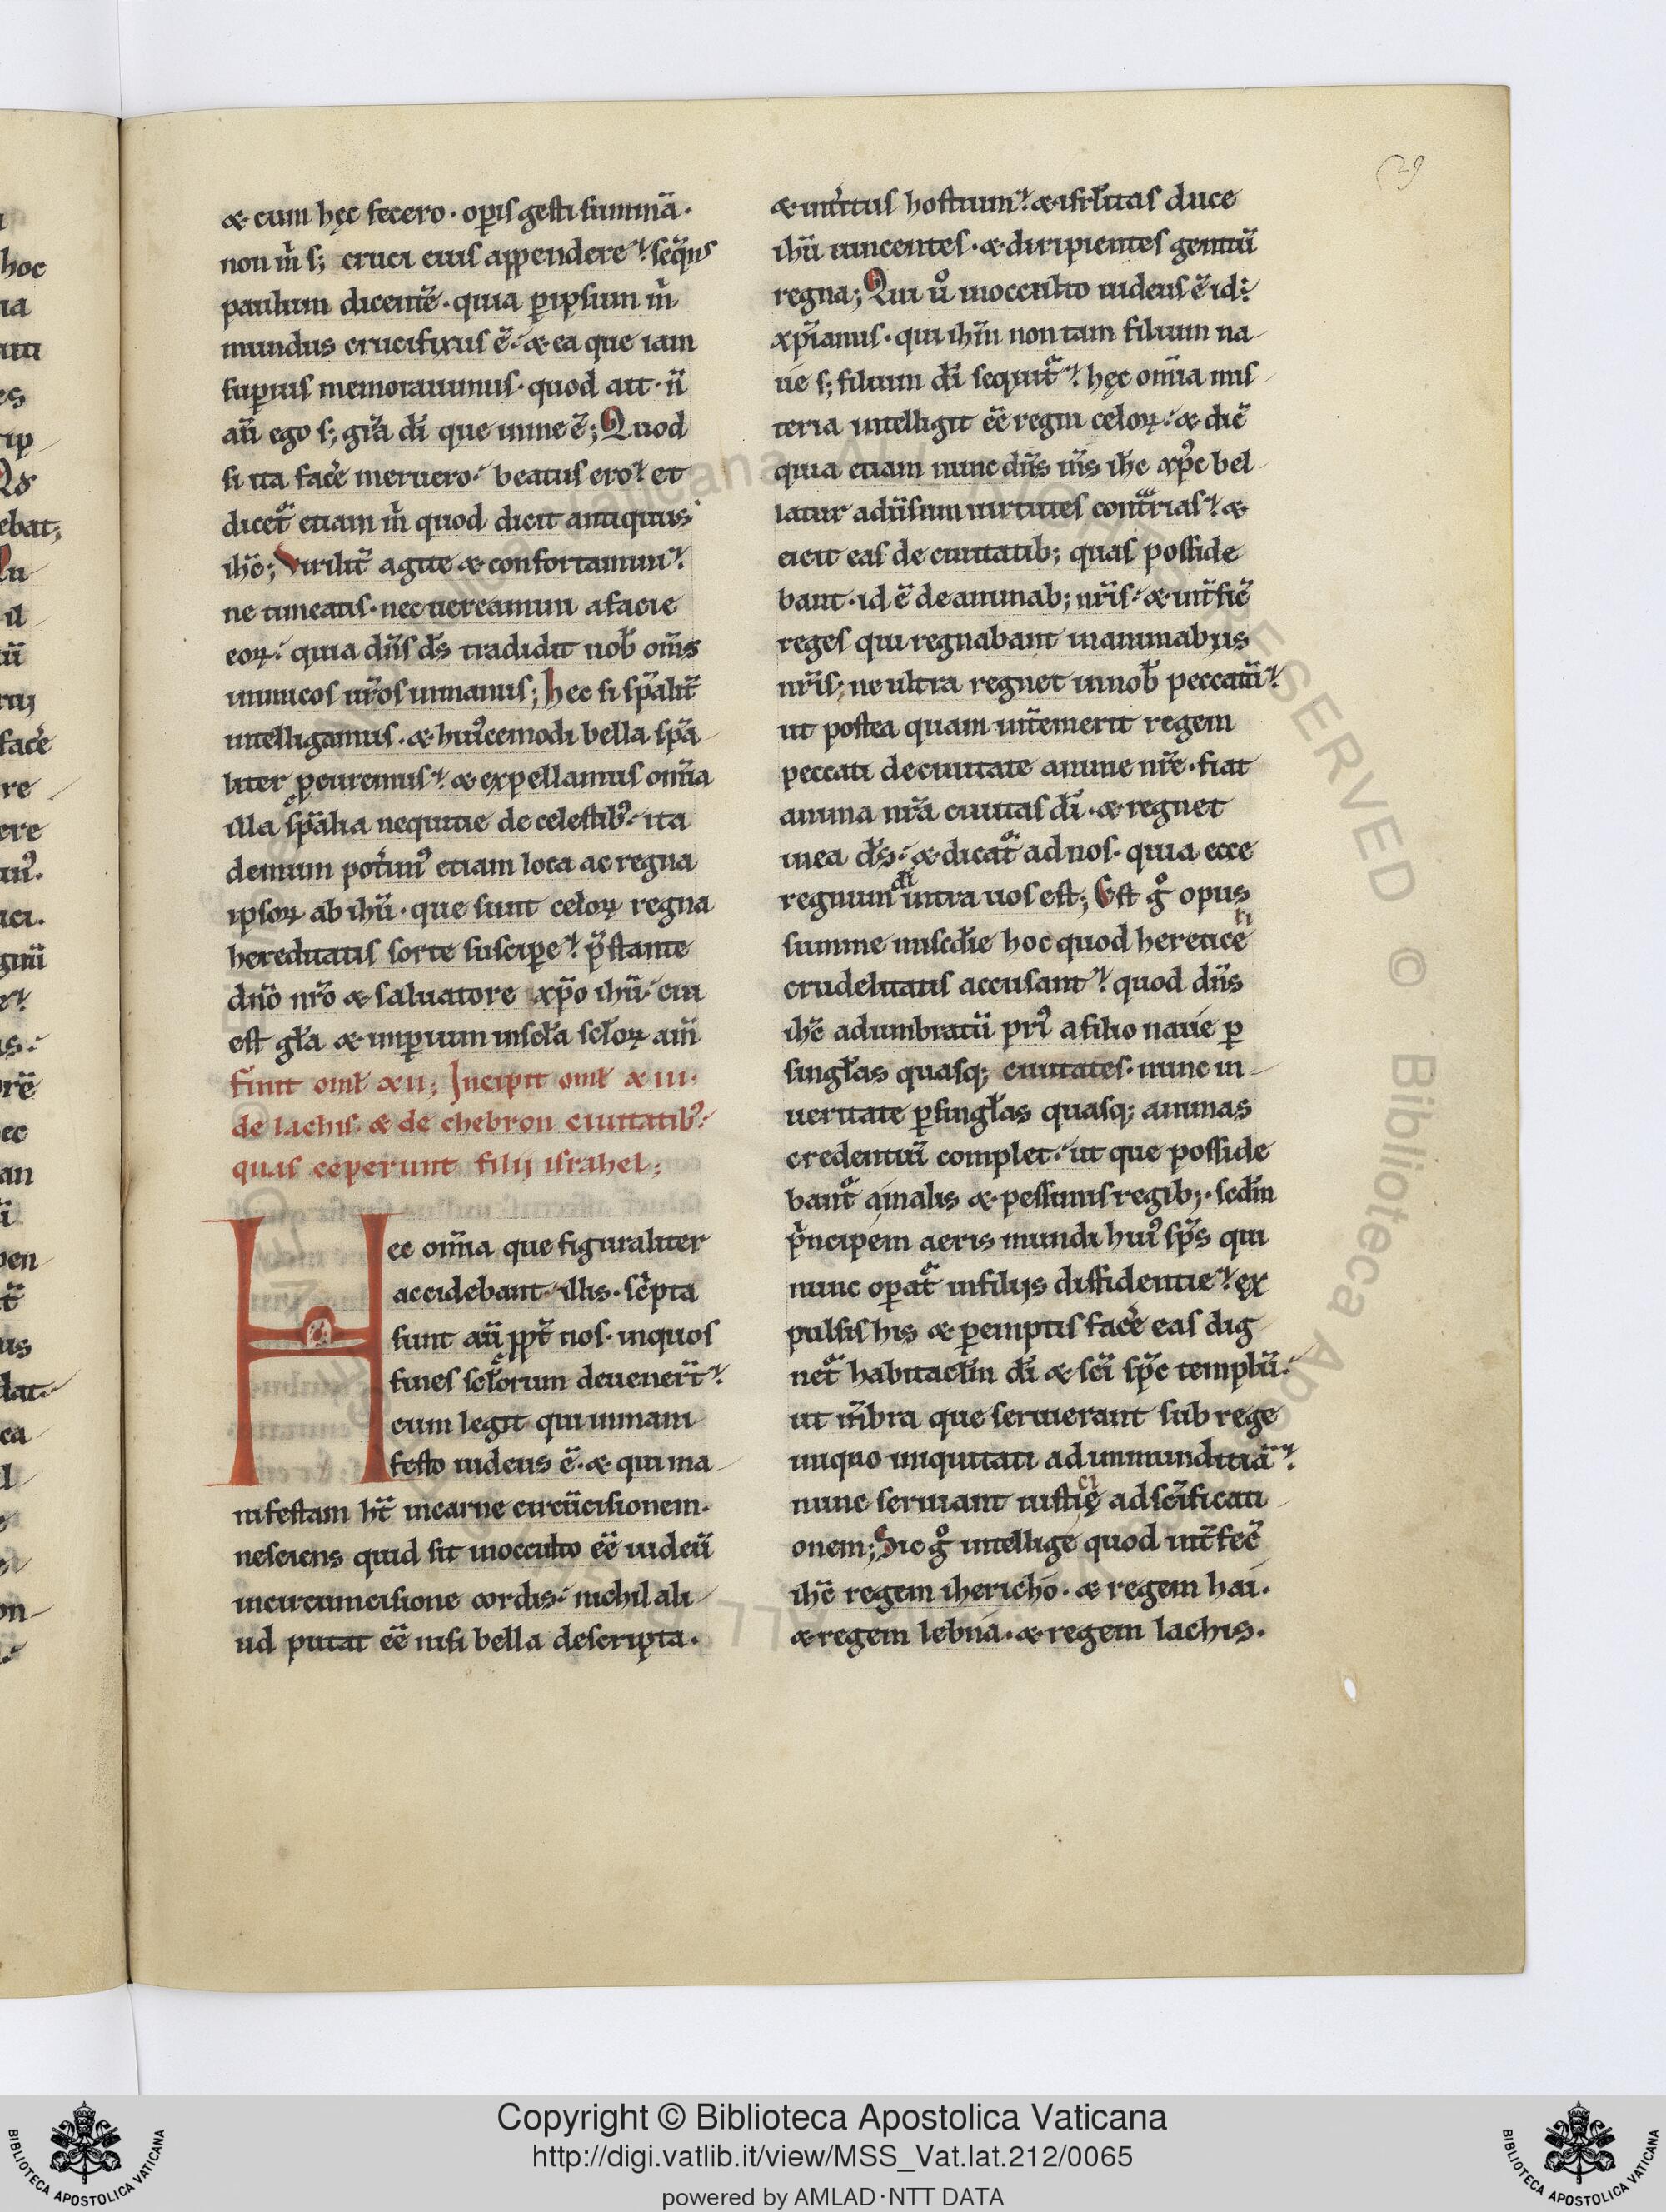 29
& cum hęc fecero · opis gesti summā ·
non m̄ s; cruci eius appendere · seq̄ns
paulum dicentē · quia p ipsum m̄
mundus crucifixus ē · & ea que iam
supius memorauimus · quod ait · n̄
aū ego s; gr̄a dī que in me ē; Quod
si ita facē meruero · beatus ero · et
dicet̄ etiam m̄ quod dicit antiquus
ihc̄; Virilit̄ agite & confortamini ·
ne timeatis · nec uereamini a facie
eoꝝ · quia dn̄s ds̄ tradidit uob̄ om̄s
inimicos ur̄os in manus; hec si sp̄alit̄
intelligamus · & hui9cemodi bella sp̄a
liter pcuremus · & expellamus om̄ia
illa sp̄alia nequitie de celestib9 · ita
demum pot̄im9 etiam loca ac regna
ipsoꝝ ab ihū · que sunt celoꝝ regna
hereditatis sorte suscipe · p̄stante
dn̄o nr̄o & saluatore xp̄o ihū · cui
est gl̄a & impium in scl̄a scl̄oꝝ am̄
finit oml̄ xii; Incipit oml̄ xiii ·
de lachis · & de chebron ciuitatib9 ·
quas ceperunt filij israhel;
Hec om̄ia que figuraliter
accidebant illis · sc̄pta
sunt aū ppt̄ nos · in quos
fines scl̄orum deuener̄t ·
cum legit qui in mani
festo iudeus ē · & qui ma
nifestam ht̄ in carne circūcisionem ·
nesciens quid sit in occulto eē iudeū
in circumcisione cordis · nichil ali
ud putat eē nisi bella descripta ·
& int̄itus hostium · & isrl̄itas duce
ihū uincentes · & diripientes gentiū
regna; Qui u̇ in occulto iudeus ē id ·
xp̄ianus · qui ihm̄ non tam filium na
ue s; filium dī sequit̄ · hęc om̄ia mis
teria intelligit eē regni celoꝝ · & dic̄
quia etiam nunc dn̄s nr̄s ihc̄ xp̄c bel
latur aduīsum uirtutes cont̄rias · &
eicit eas de ciuitatib; quas posside
bant · id ē de animab; nr̄is · & int̄fic̄
reges qui regnabant in animabus
nr̄is; ne ultra regnet in nob̄ peccatū ·
ut postea quam int̄emerit regem
peccati de ciuitate anime nr̄e · fiat
anima nr̄a ciuitas dī · & regnet
in ea ds̄ · & dicat̄ ad nos · quia ecce
regnum dī intra uos est; Est g̊ opus
summe misc̄die hoc quod heretice
crudelitatis accusant · quod dn̄s
ihc̄ adumbratū pri9 a filio naue p
singl̄as quasq; ciuitates · nunc in
ueritate p singl̄as quasq; animas
credentiū complet · ut que posside
bant̄ a malis & pessimis regib; · scdm̄
p̄ncipem aeris mundi hui9 sp̄s qui
nunc opat̄ in filijs diffidentie · ex
pulsis his & pemptis facē eas dig
net̄ habitaclm̄ dī & sc̄i sp̄c templū ·
ut m̄bra que seruierant sub rege
iniquo iniquitati ad inmunditiā ·
nunc seruiant iusticię ad sc̄ificati
onem; Sic g̊ intellige quod int̄fec̄
ihc̄ regem ihericho · & regem hai ·
& regem lebna · & regem lachis ·
hoc
Copyright © Biblioteca Apostolica Vaticana
http://digi.vatlib.it/view/MSS_Vat.lat.212/0065
powered by AMLAD·NTT DATA
BIBLIOTECA APOSTOLICA VATICANA
BIBLIOTECA APOSTOLICA VATICANA